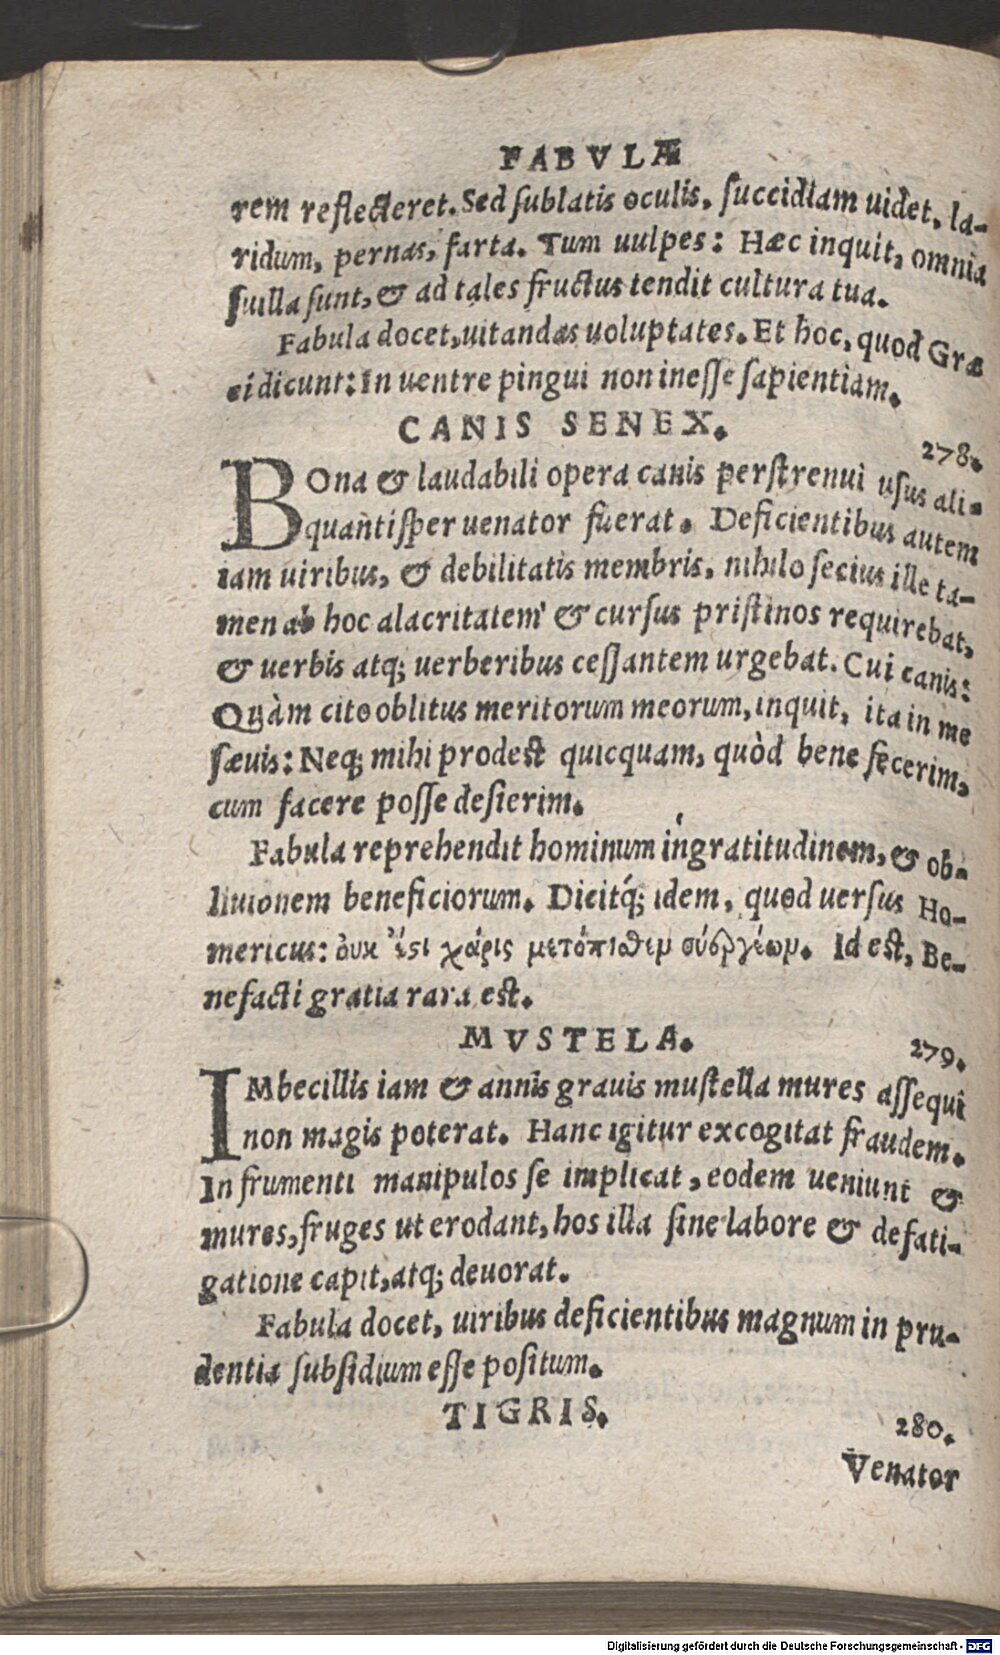 FABVLÆ
rem reflecteret. Sed sublatis oculis, succidiam uidet, la-
ridum, pernas, farta. Tum uulpes: Hæc inquit, omnia
suilla sunt, & ad tales fructus tendit cultura tua.
Fabula docet, uitandas uoluptates. Et hoc, quod Græ
ci dicunt: In uentre pingui non inesse sapientiam.
CANIS SENEX. 278.
BOna & laudabili opera canis perstrenui usus ali-
quantisper uenator fuerat. Deficientibus autem
iam uiribus, & debilitatis membris, nihilo secius ille ta-
men ab hoc alacritatem & cursus pristinos requirebat,
& uerbis atq; uerberibus cessantem urgebat. Cui canis:
Quàm cito oblitus meritorum meorum, inquit, ita in me
sæuis: Neq; mihi prodest quicquam, quòd bene fecerim,
cum facere posse desierim.
Fabula reprehendit hominum ingratitudinem, & ob-
liuionem beneficiorum. Dicitq́; idem, quod uersus Ho-
mericus: χάρις Id est, Be-
nefacti gratia rara est.
MVSTELA. 279.
IMbecillis iam & annis grauis mustella mures assequi
non magis poterat. Hanc igitur excogitat fraudem.
In frumenti manipulos se implicat, eodem ueniunt &
mures, fruges ut erodant, hos illa sine labore & defati-
gatione capit, atq; deuorat.
Fabula docet, uiribus deficientibus magnum in pru-
dentia subsidium esse positum.
TIGRIS. 280.
Venator
Digitalisierung gefördert durch die Deutsche Forschungsgemeinschaft - DFG